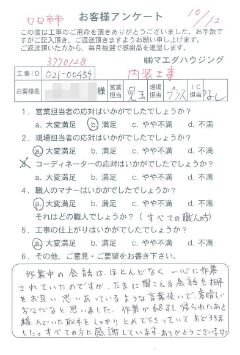 お客様アンケート
10/12
この度は工事のご用命を頂きありがとうございました。お手数で
すがご記入頂き、ご返送頂きますようお願い申し上げます。
ご返送頂いた方から、毎月抽選で感謝品を進呈します。
3770128
㈱マエダハウジング
工事ID
021-00454
内装工事
お客様名
様
営業担当
現場担当
IC担当
なし
1. 営業担当者の応対はいかがでしたでしょうか？
a. 大変満足 b. 満足 c. やや不満 d. 不満
2. 現場担当者の応対はいかがでしたでしょうか？
a. 大変満足 b. 満足 c. やや不満 d. 不満
3. コーディネーターの応対はいかがでしたでしょうか？
a. 大変満足 b. 満足 c. やや不満 d. 不満
4. 職人のマナーはいかがでしたでしょうか？
a. 大変満足 b. 満足 c. やや不満 d. 不満
それはどの職人でしょうか？（すべての職人の方）
5. 工事の仕上がりはいかがでしたでしょうか？
a. 大変満足 b. 満足 c. やや不満 d. 不満
6. その他、ご意見・ご要望をお書き下さい。
作業中の会話はほとんどなく 一心に作業
されていたのですが、たまに聞こえる会話も相手
をお互い思いあっているような言葉使いで、素晴しい
方だなと思いました。作業が終わり帰られたあと
緩んでいた取手をしっかりとめて下さっていて おどろきま
した。すべての方に感謝しています ありがとうございました